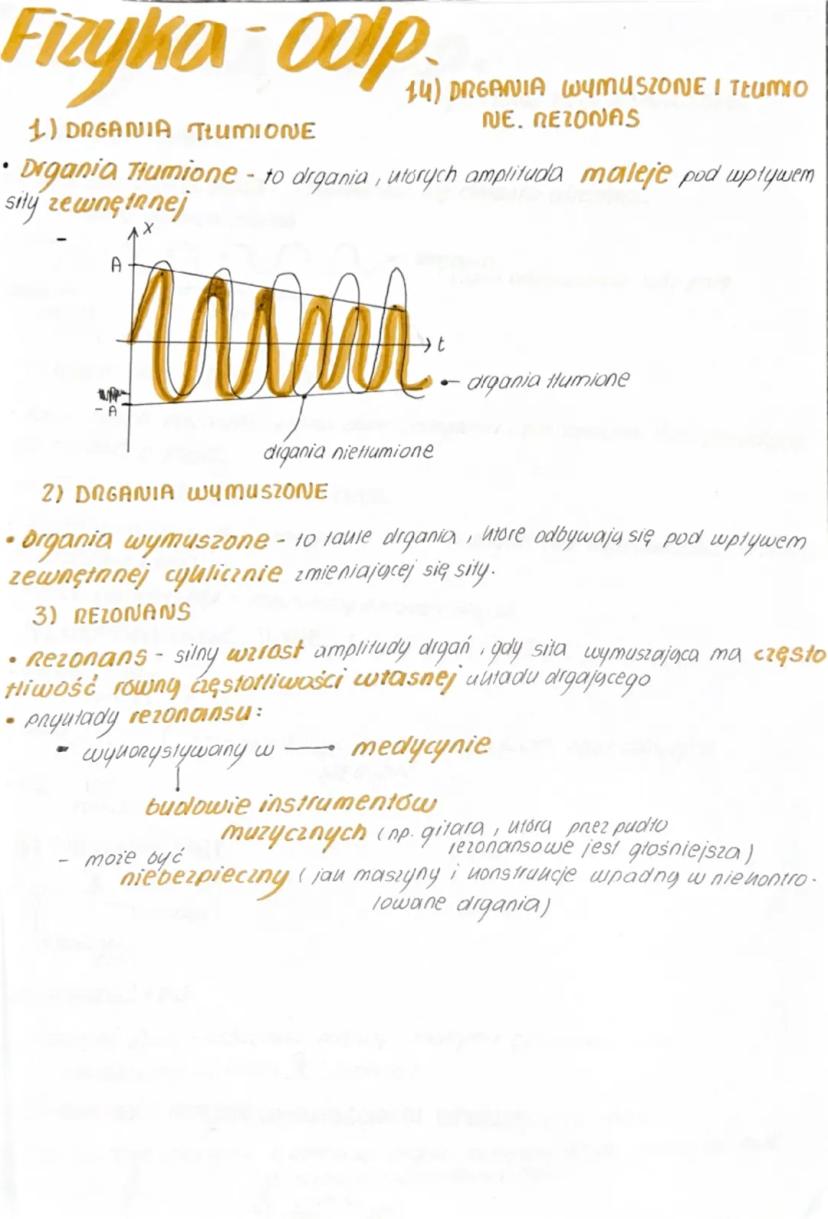 Fizyka - odp.
14) DRGANIA WYMUSZONE I TŁUMIO
NE. REZONAS
1) DRGANIA TŁUMIONE
• Drgania Tłumione - to drgania, których amplituda maleje pod wpływem
siły zewnętrznej
x
A
t
- A
drgania tłumione
drgania nietłumione
2) DRGANIA WYMUSZONE
• Drgania wymuszone - to takie drgania, które odbywają się pod wpływem
zewnętrznej cyklicznie zmieniającej się siły.
3) REZONANS
• Rezonans - silny wzrost amplitudy drgań, gdy siła wymuszająca ma często
tliwość równą częstotliwości własnej układu drgającego
• przykłady rezonansu:
- wykorzystywany w → medycynie
budowie instrumentów
muzycznych (np. gitara, która przez pudło
rezonansowe jest głośniejsza)
- może być
niebezpieczny (jak maszyny i konstrukcje wpadną w niekontro-
lowane drgania)